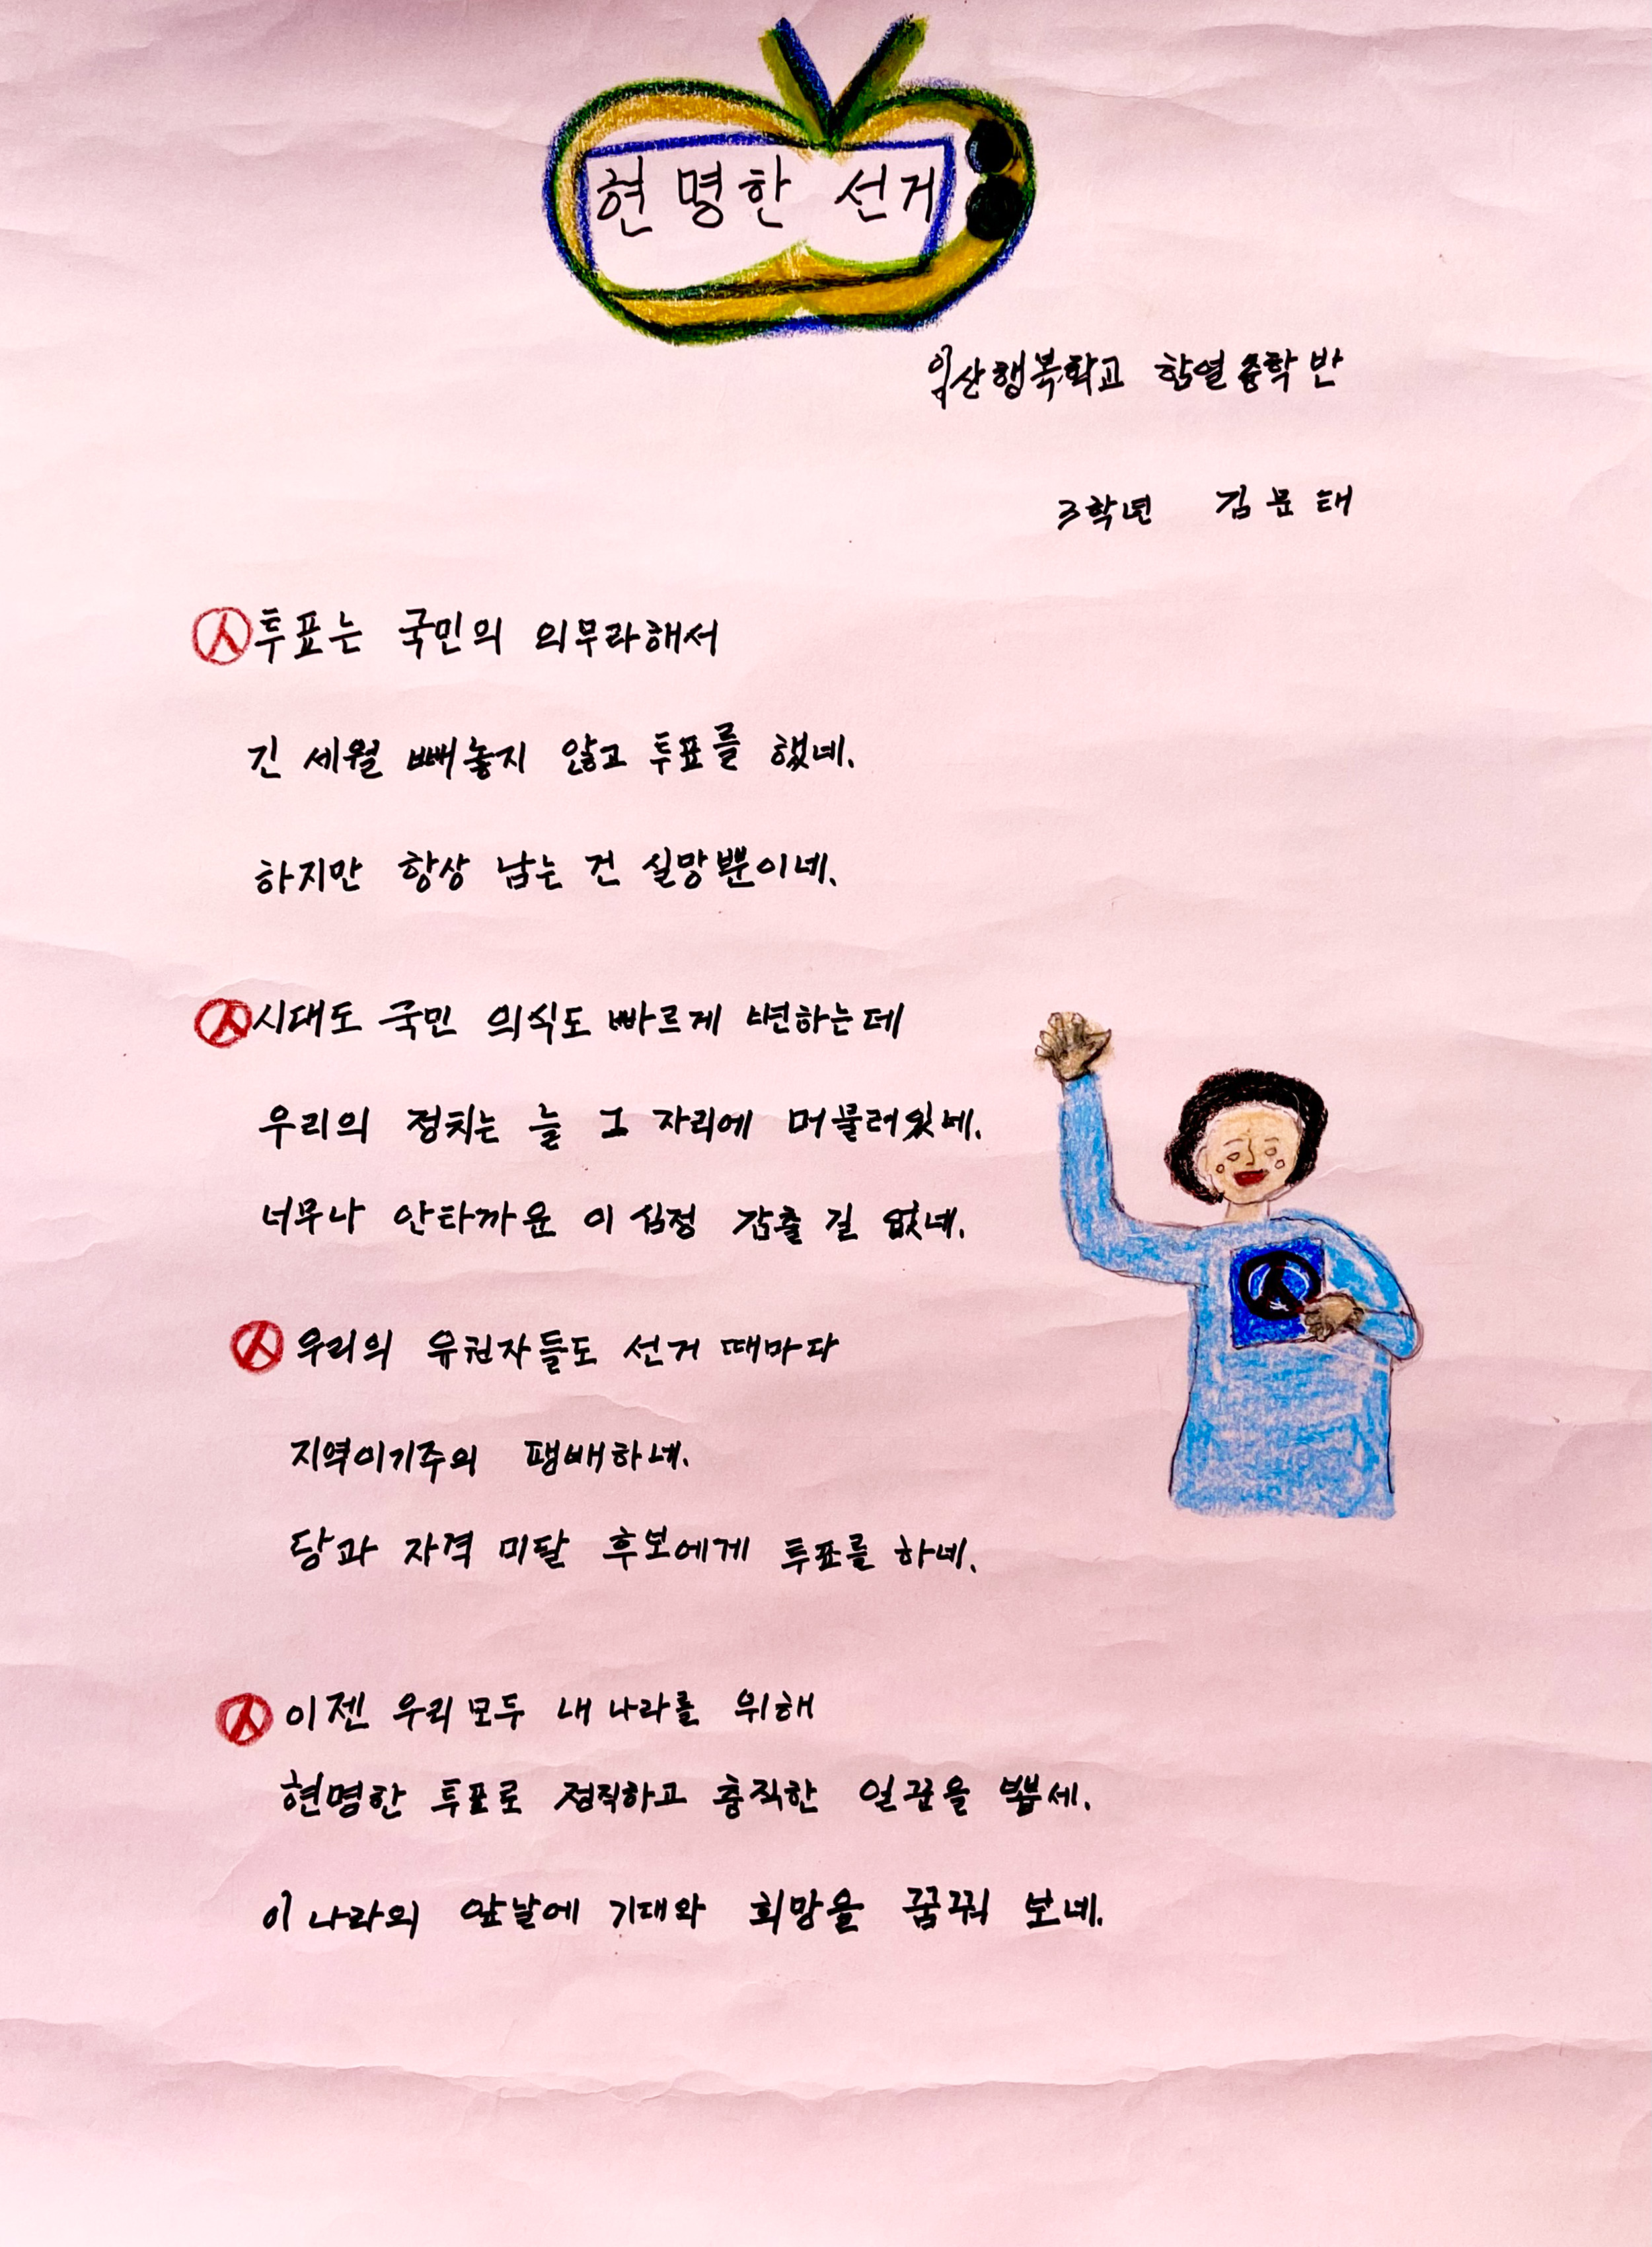 현명한 선거
익산행복학교 함열중학반
3학년 김문태
투표는 국민의 의무라해서
긴 세월 빼놓지 않고 투표를 했네.
하지만 항상 남는 건 실망뿐이네.
시대도 국민 의식도 빠르게 변하는데
우리의 정치는 늘 그 자리에 머물러있네.
너무나 안타까운 이 심정 감출 길 없네.
우리의 유권자들도 선거 때마다
지역이기주의 팽배하네.
당과 자격 미달 후보에게 투표를 하네.
이젠 우리 모두 내 나라를 위해
현명한 투표로 정직하고 충직한 일꾼을 뽑세.
이 나라의 앞날에 기대와 희망을 꿈꿔 보네.